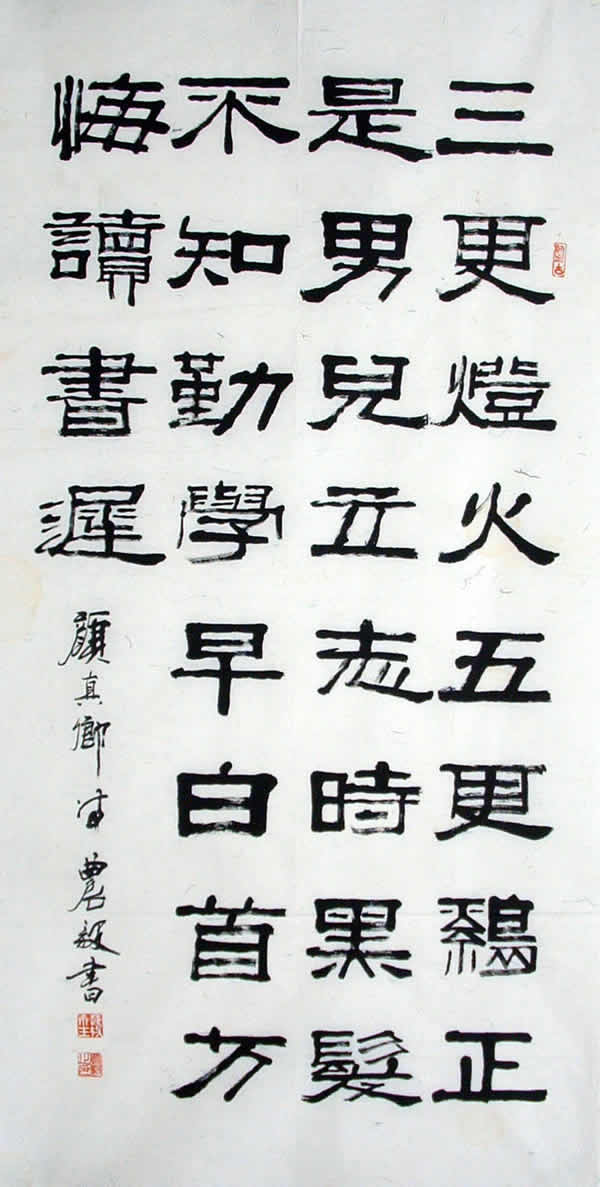 三更燈火五更鷄正
是男兒立志時黑髮
不知勤學早白首方
悔讀書遲
顏真卿诗 農書